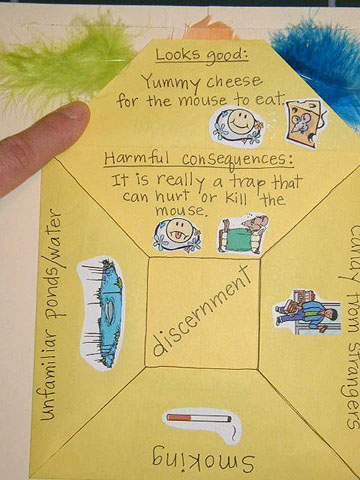 Looks good:
Yummy cheese
for the mouse to eat.
Harmful consequences:
It is really a trap that
can hurt or kill the
mouse.
unfamiliar ponds/water
discernment
candy from strangers
Smoking